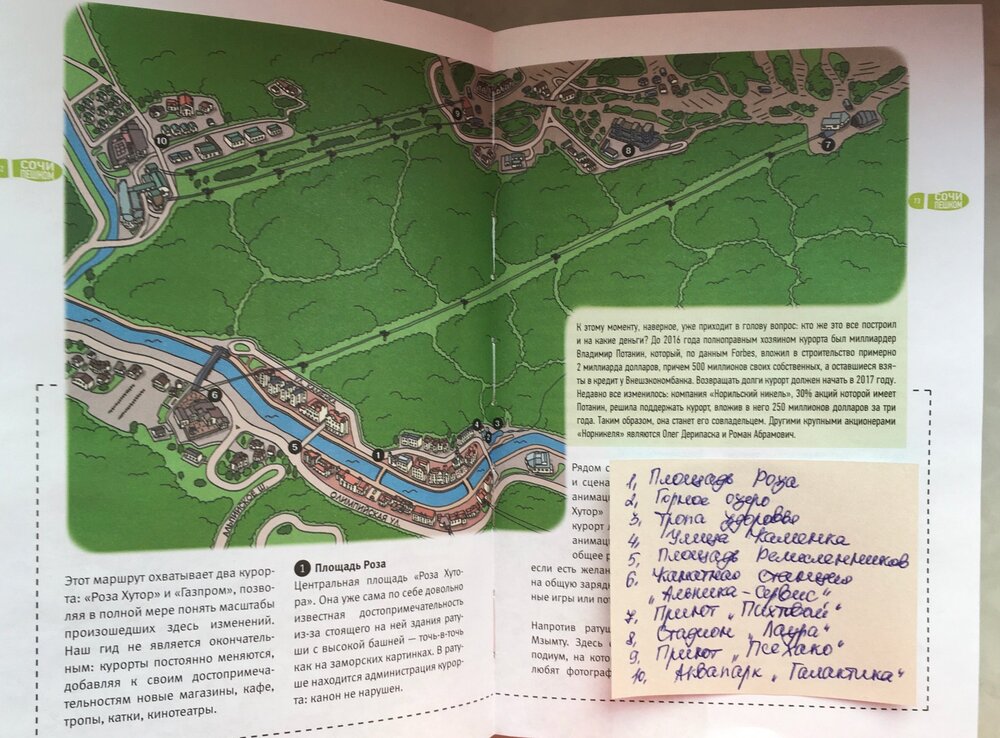 СОЧИ
ПЕШКОМ
72
СОЧИ
ПЕШКОМ
73
10
9
8
7
6
5
4
3
2
1
АЛЬПИЙСКОЕ Ш.
ОЛИМПИЙСКАЯ УЛ
К этому моменту, наверное, уже приходит в голову вопрос: кто же это все построил
и на какие деньги? До 2016 года полноправным хозяином курорта был миллиардер
Владимир Потанин, который, по данным Forbes, вложил в строительство примерно
2 миллиарда долларов, причем 500 миллионов своих собственных, а оставшиеся взя-
ты в кредит у Внешэкономбанка. Возвращать долги курорт должен начать в 2017 году.
Недавно все изменилось: компания «Норильский никель», 30% акций которой имеет
Потанин, решила поддержать курорт, вложив в него 250 миллионов долларов за три
года. Таким образом, она станет его совладельцем. Другими крупными акционерами
«Норникеля» являются Олег Дерипаска и Роман Абрамович.
Этот маршрут охватывает два курор-
та: «Роза Хутор» и «Газпром», позво-
ляя в полной мере понять масштабы
произошедших здесь изменений.
Наш гид не является окончатель-
ным: курорты постоянно меняются,
добавляя к своим достопримеча-
тельностям новые магазины, кафе,
тропы, катки, кинотеатры.
1 Площадь Роза
Центральная площадь «Роза Хуто-
ра». Она уже сама по себе довольно
известная достопримечательность
из-за стоящего на ней здания рату-
ши с высокой башней — точь-в-точь
как на заморских картинках. В рату-
ше находится администрация курор-
та: канон не нарушен.
Рядом с
и сцена
анимац
Хутор»
курорт
анимац
общее р
если есть желан
на общую заряд
ные игры или по
Напротив ратуш
Мзымту. Здесь
подиум, на кото
любят фотограф
1, Площадь Роза
2, Горное озеро
3, Тропа здоровья
4, Улица Каменка
5, Площадь Ремесленников
6, Канатная станция
„Альпика-Сервис"
7, Приют „Пихтовый"
8, Стадион „Лаура"
9, Приют „Псехако"
10, Аквапарк „Галактика"